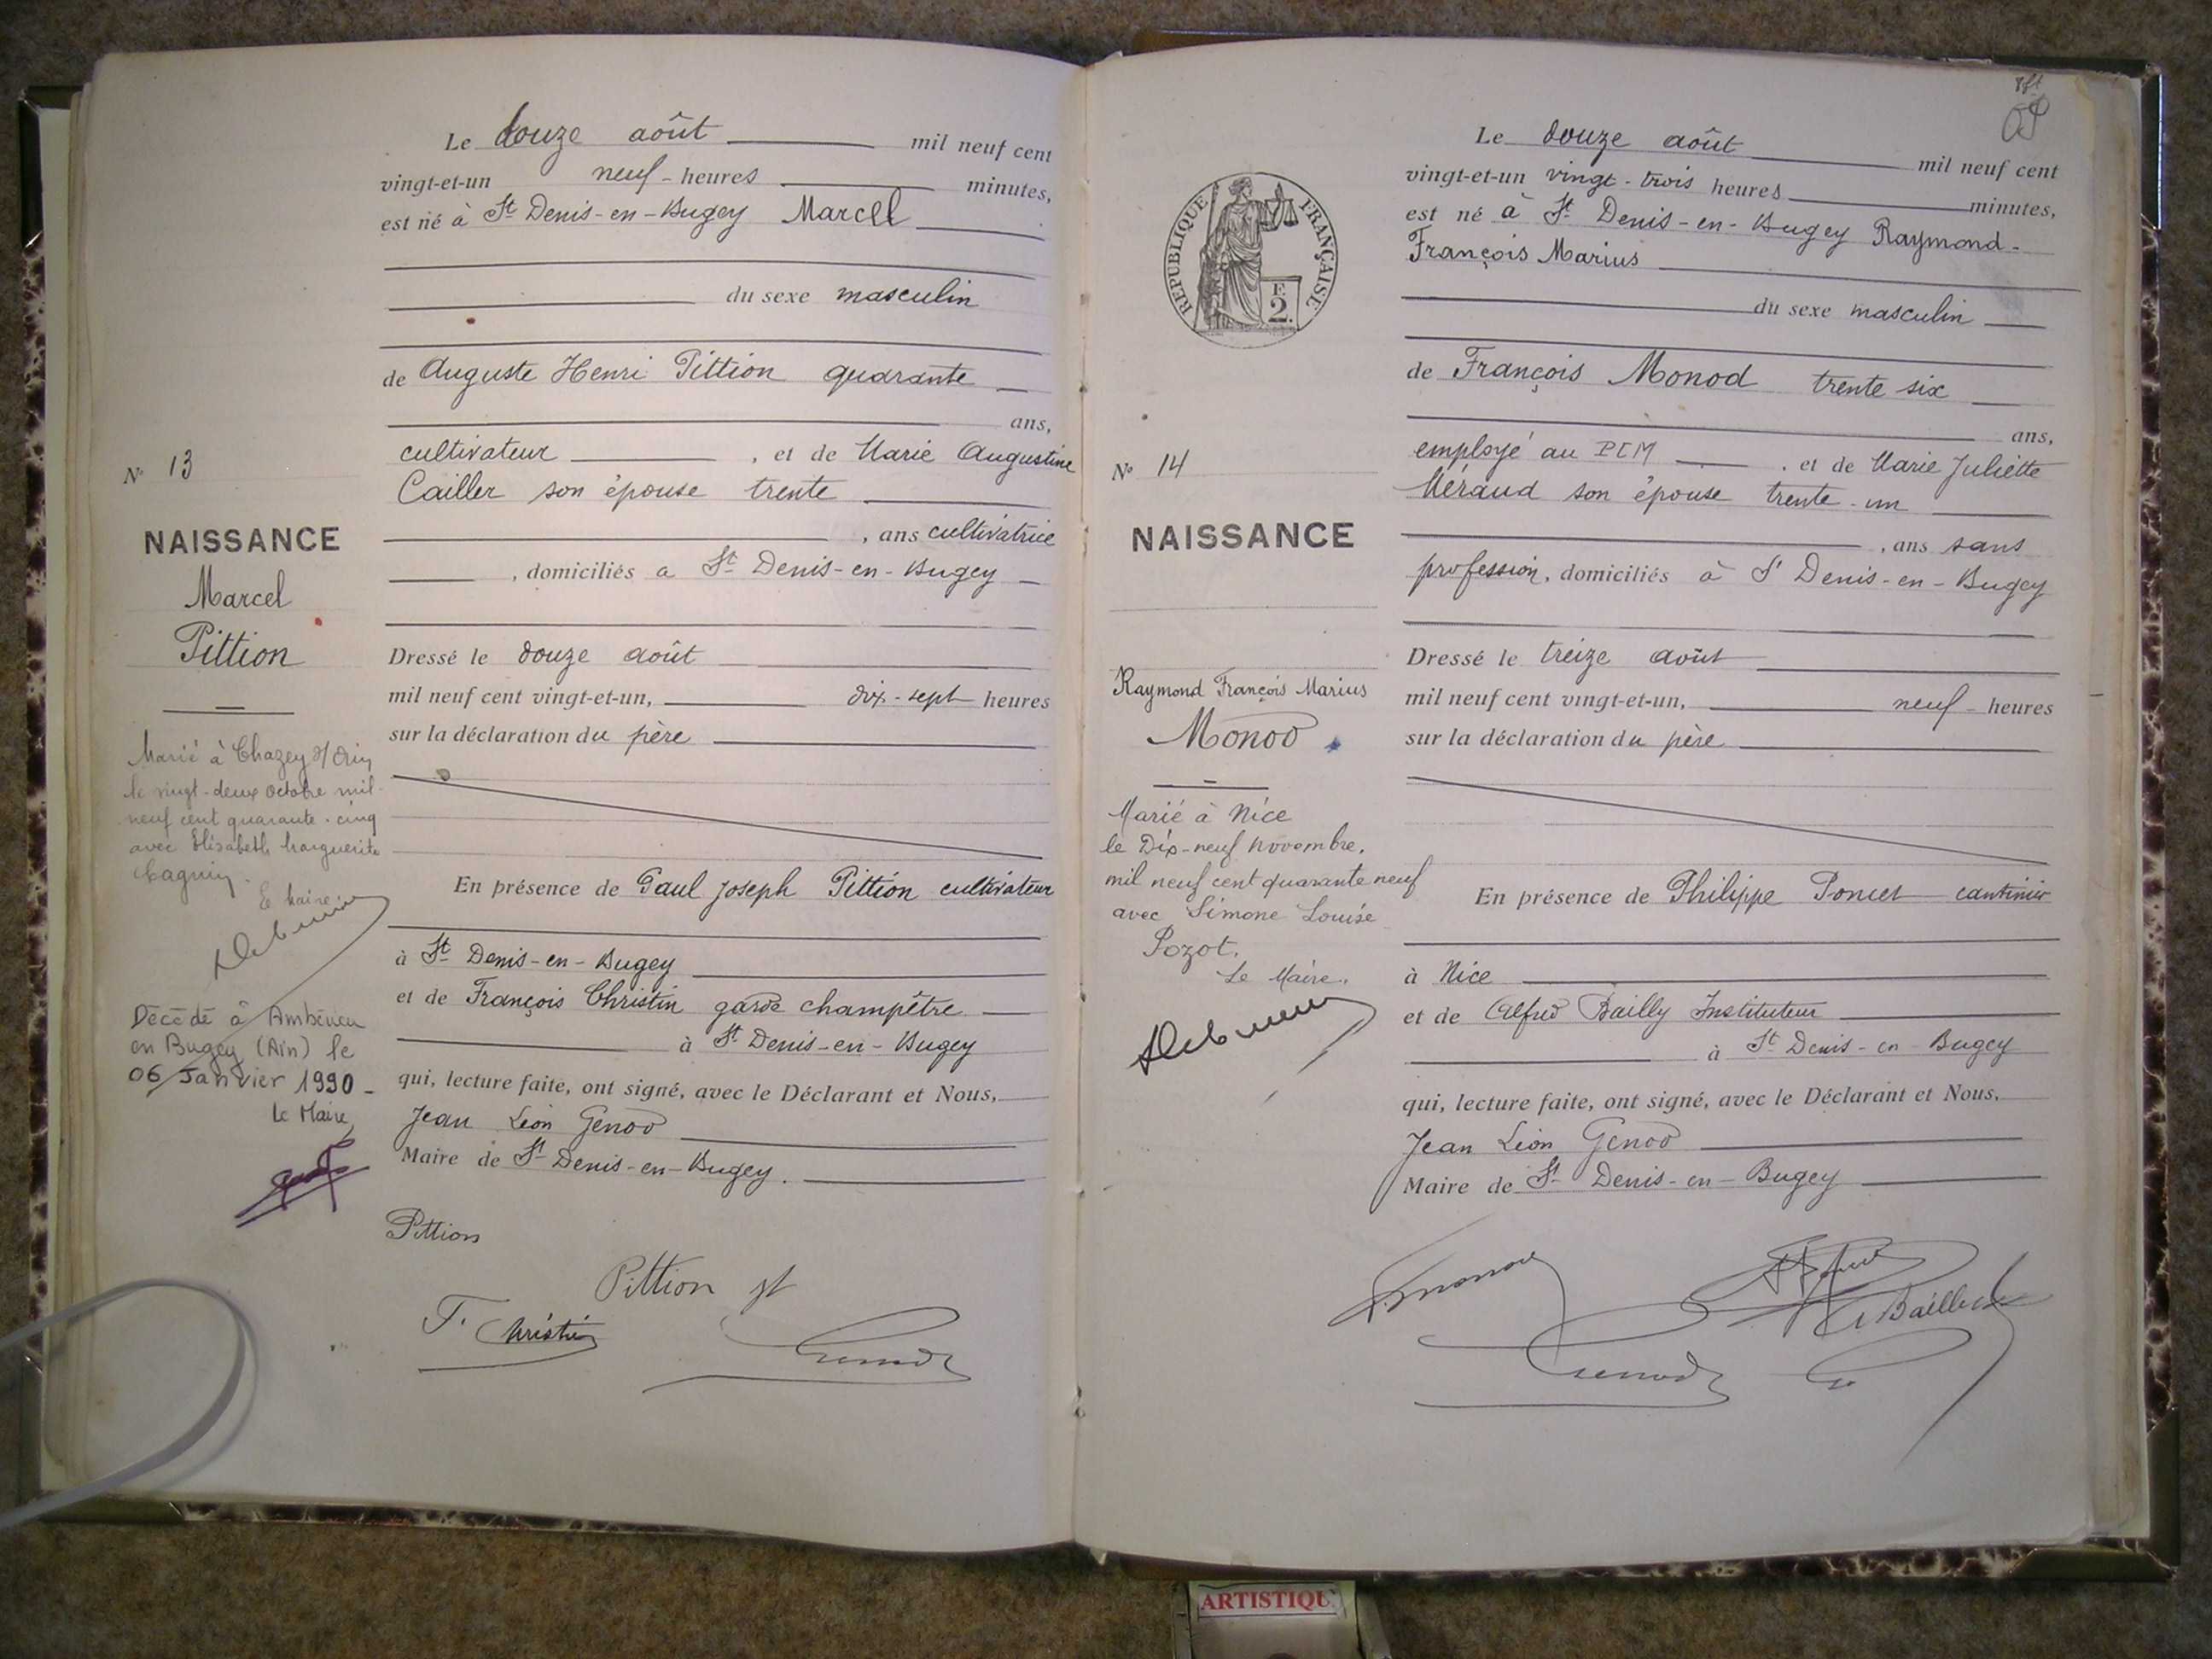 Le douze août mil neuf cent
vingt-et-un neuf - heures minutes,
est né à St Denis-en-Bugey Marcel
du sexe masculin
de Auguste Henri Pittion quarante
ans,
cultivateur , et de Marie Augustine
Cailler son épouse trente
, ans cultivatrice
, domiciliés a St Denis-en-Bugey
Dressé le douze août
mil neuf cent vingt-et-un, dix-sept heures
sur la déclaration du père
En présence de Paul Joseph Pittion cultivateur
à St Denis-en-Bugey
et de François Christin garde champêtre
à St Denis-en-Bugey
qui, lecture faite, ont signé, avec le Déclarant et Nous,
Jean Léon Genod
Maire de St Denis-en-Bugey.
Pittion
Pittion
F. Christin
Genod
N° 13
NAISSANCE
Marcel
Pittion
Marié à Chazey s/ Ain
le vingt-deux octobre mil
neuf cent quarante-cinq
avec Elisabeth Marguerite
Le Maire
Décédé à Ambérieu
en Bugey (Ain) le
06 Janvier 1990 -
Le Maire,
REPUBLIQUE FRANÇAISE
F.
2.
Le douze août mil neuf cent
vingt-et-un vingt-trois heures minutes,
est né à St Denis-en-Bugey Raymond-
François Marius
du sexe masculin
de François Monod trente six
ans,
employé au PLM , et de Marie Juliette
Méraud son épouse trente-un
, ans sans
profession, domiciliés à St Denis-en-Bugey
Dressé le treize août
mil neuf cent vingt-et-un, neuf - heures
sur la déclaration du père
En présence de Philippe Poncet cantinier
à Nice
et de Alfred Bailly Instituteur
à St Denis-en Bugey
qui, lecture faite, ont signé, avec le Déclarant et Nous,
Jean Léon Genod
Maire de St Denis-en-Bugey
F. Monod
A Bailly
Genod
N° 14
NAISSANCE
Raymond François Marius
Monod
Marié à Nice
le Dix-neuf novembre,
mil neuf cent quarante neuf
avec Simone Louise
Pozot.
Le Maire,
ARTISTIQU